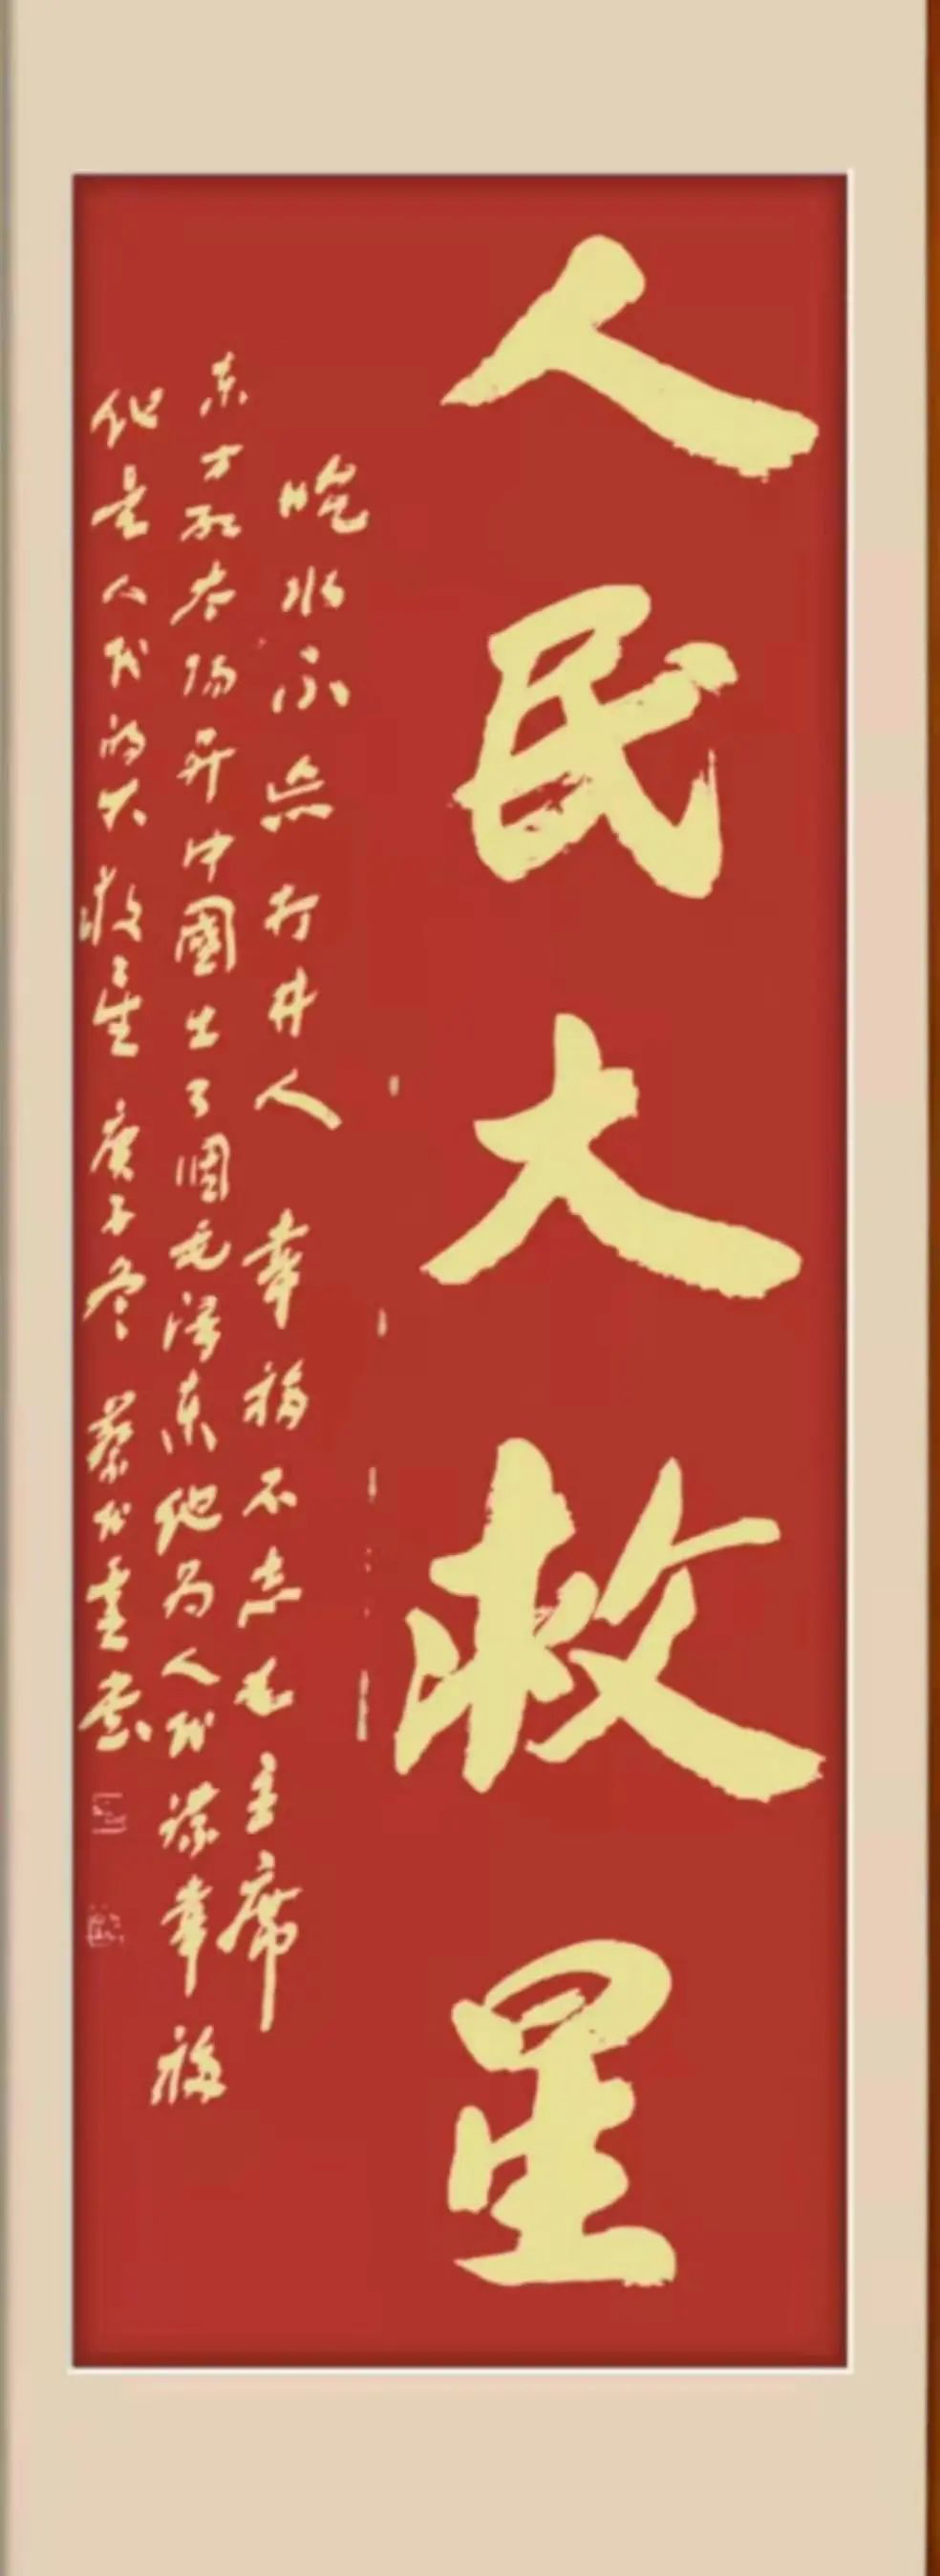 人民大救星
吃水不忘打井人 幸福不忘毛主席
东方红太阳升中國出了個毛泽东他为人民谋幸福
他是人民的大救星 庚子冬 蔡
书